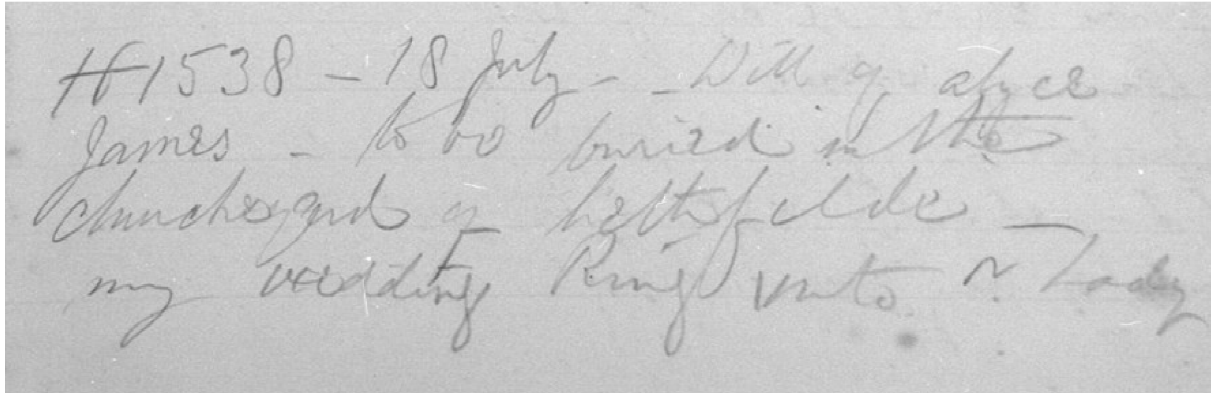 H 1538 – 18 July – – Will of alyce
James – to be buried in the
churcheyard of hethfelde –
my wedding Ring unto r. Lady